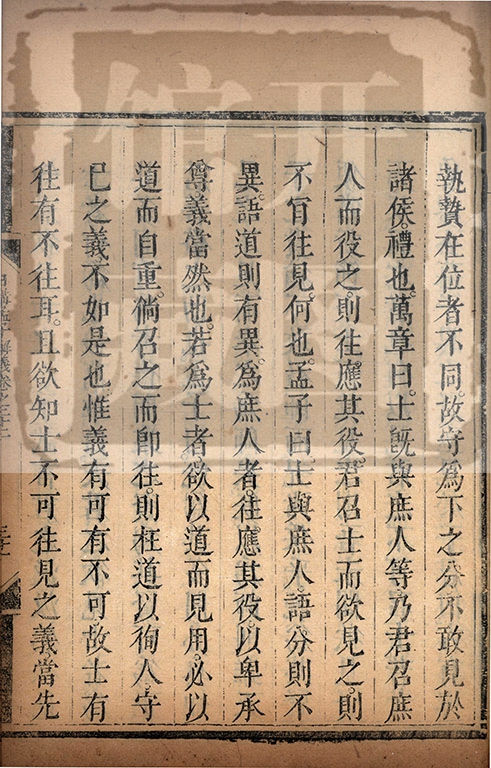 執贄在位者不同。故守爲下之分不敢見於
諸侯。禮也。萬章曰。士旣與庶人等乃君召庶
人而役之。則往應其役。君召士而欲見之。則
不肎往見。何也。孟子曰。士與庶人。語分則不
異。語道則有異。爲庶人者。往應其役。以卑承
尊。義當然也。若爲士者。欲以道而見用。必以
道而自重。倘召之而卽往。則枉道以徇人。守
已之義不如是也惟義有可有不可。故士有
往有不往耳。且欲知士不可往見之義當先